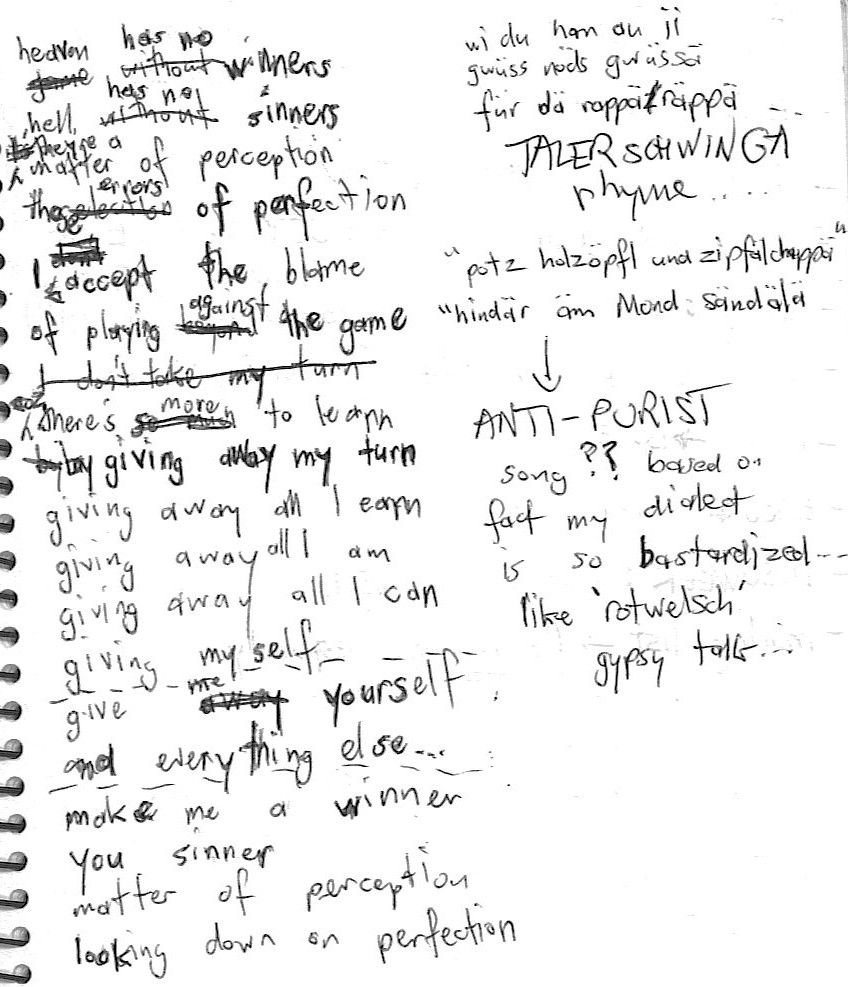 heaven has no
game without winners
has no
hell without sinners
there's a
matter of perception
errors
these selection of perfection
I don't accept the blame
of playing against beyond the game
I don't take my turn
there's so much more to learn
by giving away my turn
giving away all I earn
giving away all I am
giving away all I can
giving my self
give me away yourself
and everything else...
make me a winner
you sinner
matter of perception
looking down on perfection
wi du han au ji
gwüss nöds gwüssä
für dä rappäträppä
TALERSCHWINGÄ
rhyme.....
"potz holzöpfl und zipfälchappä"
"hindär äm Mond sändälä
ANTI-PURIST
song ?? based on
fact my dialect
is so bastardized...
like 'rotwelsch'
gypsy talk...